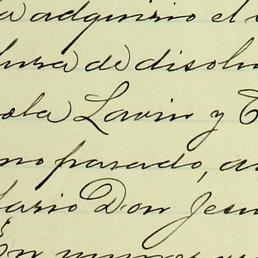 a adquirio el
tura de disolu
ola Lavin y C
no pasado, a
tario Don Jesu
En